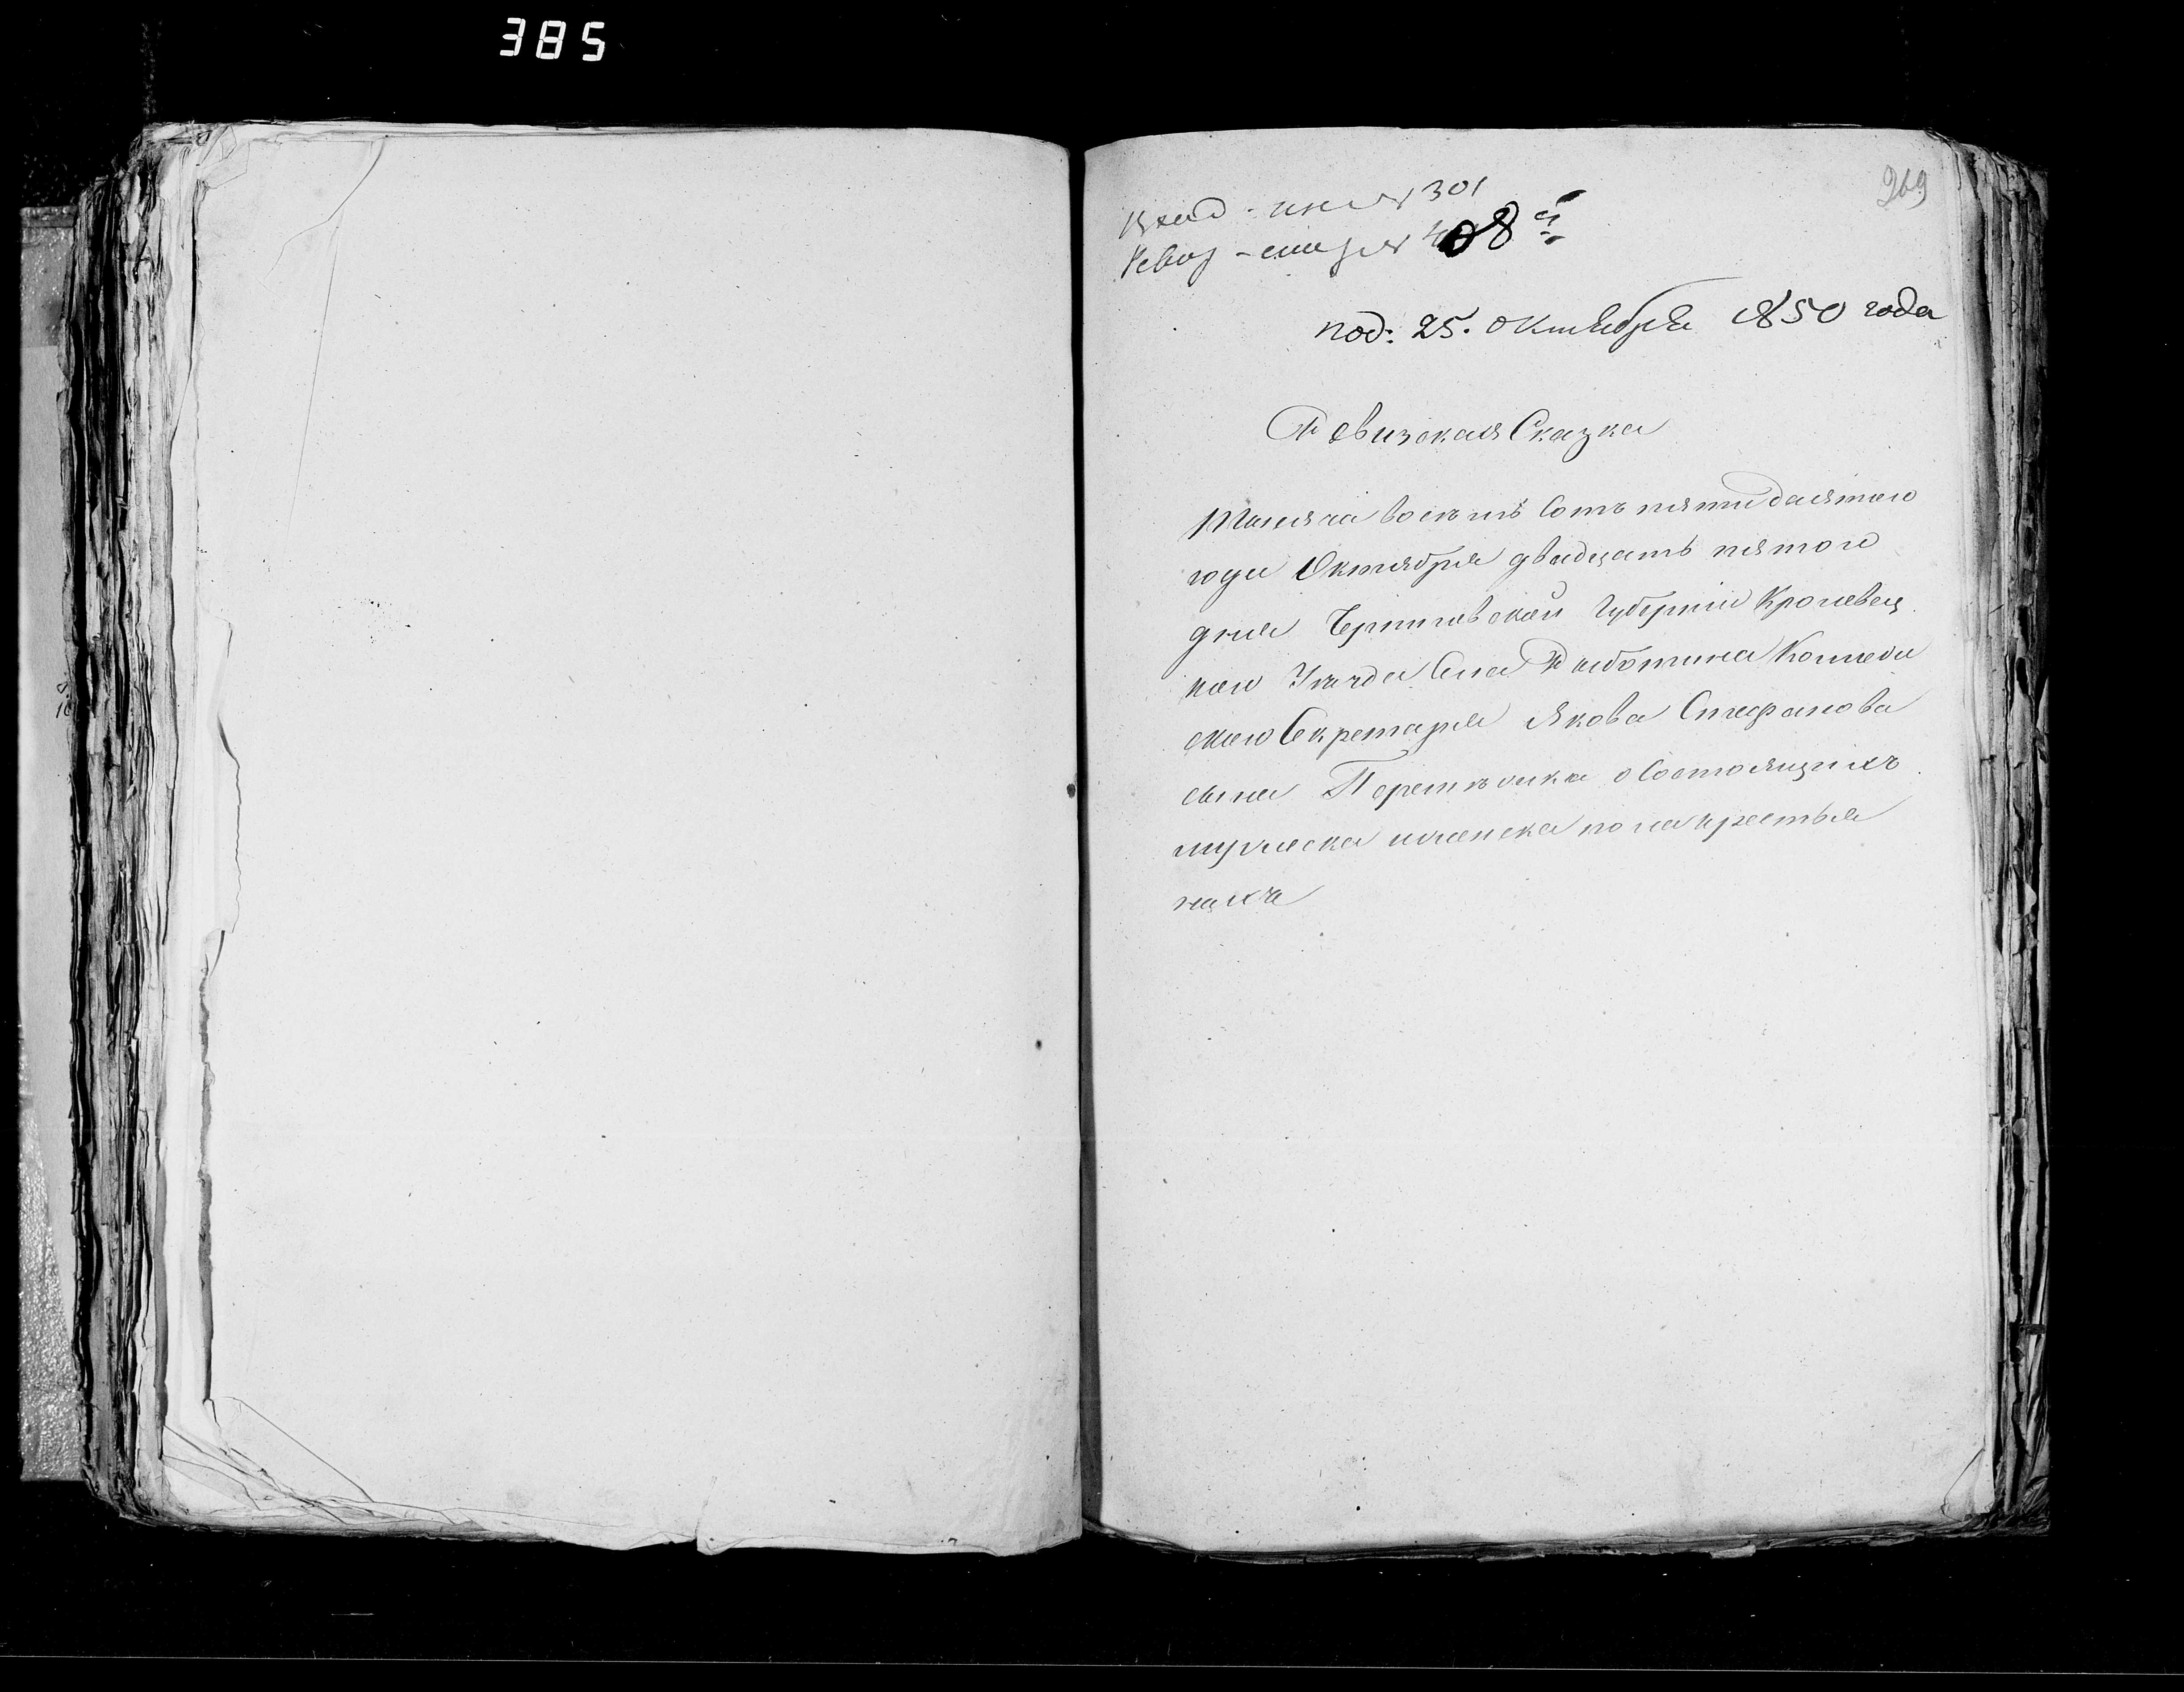 385
269
№ 301
№ 408
под: 25. Октября 1850 года
Ревизская Сказка
Тысяча восемь Сотъ пятидесятого
года Октября двадцать пятого
дня Черниговской Губерніи Кролевец
каго Уезда Села Рыботина Коллеж
скаго Секретаря Якова Стефанова
сына о Состоящихъ
мужеска иженска пола крестья
нахъ